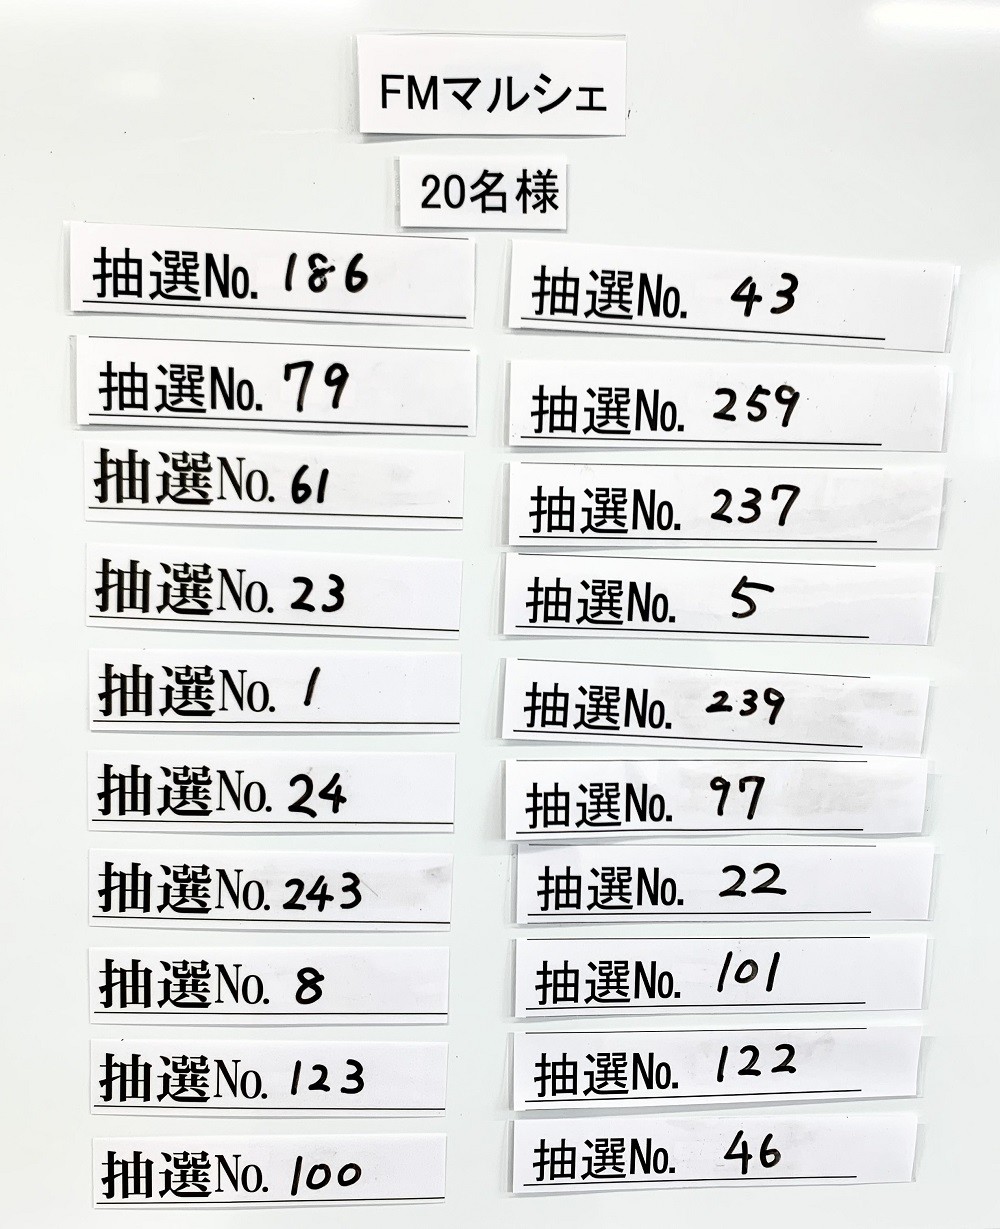 FMマルシェ
20名様
抽選No. 186
抽選No. 79
抽選No. 61
抽選No. 23
抽選No. 1
抽選No. 24
抽選No. 243
抽選No. 8
抽選No. 123
抽選No. 100
抽選No. 43
抽選No. 259
抽選No. 237
抽選No. 5
抽選No. 239
抽選No. 97
抽選No. 22
抽選No. 101
抽選No. 122
抽選No. 46